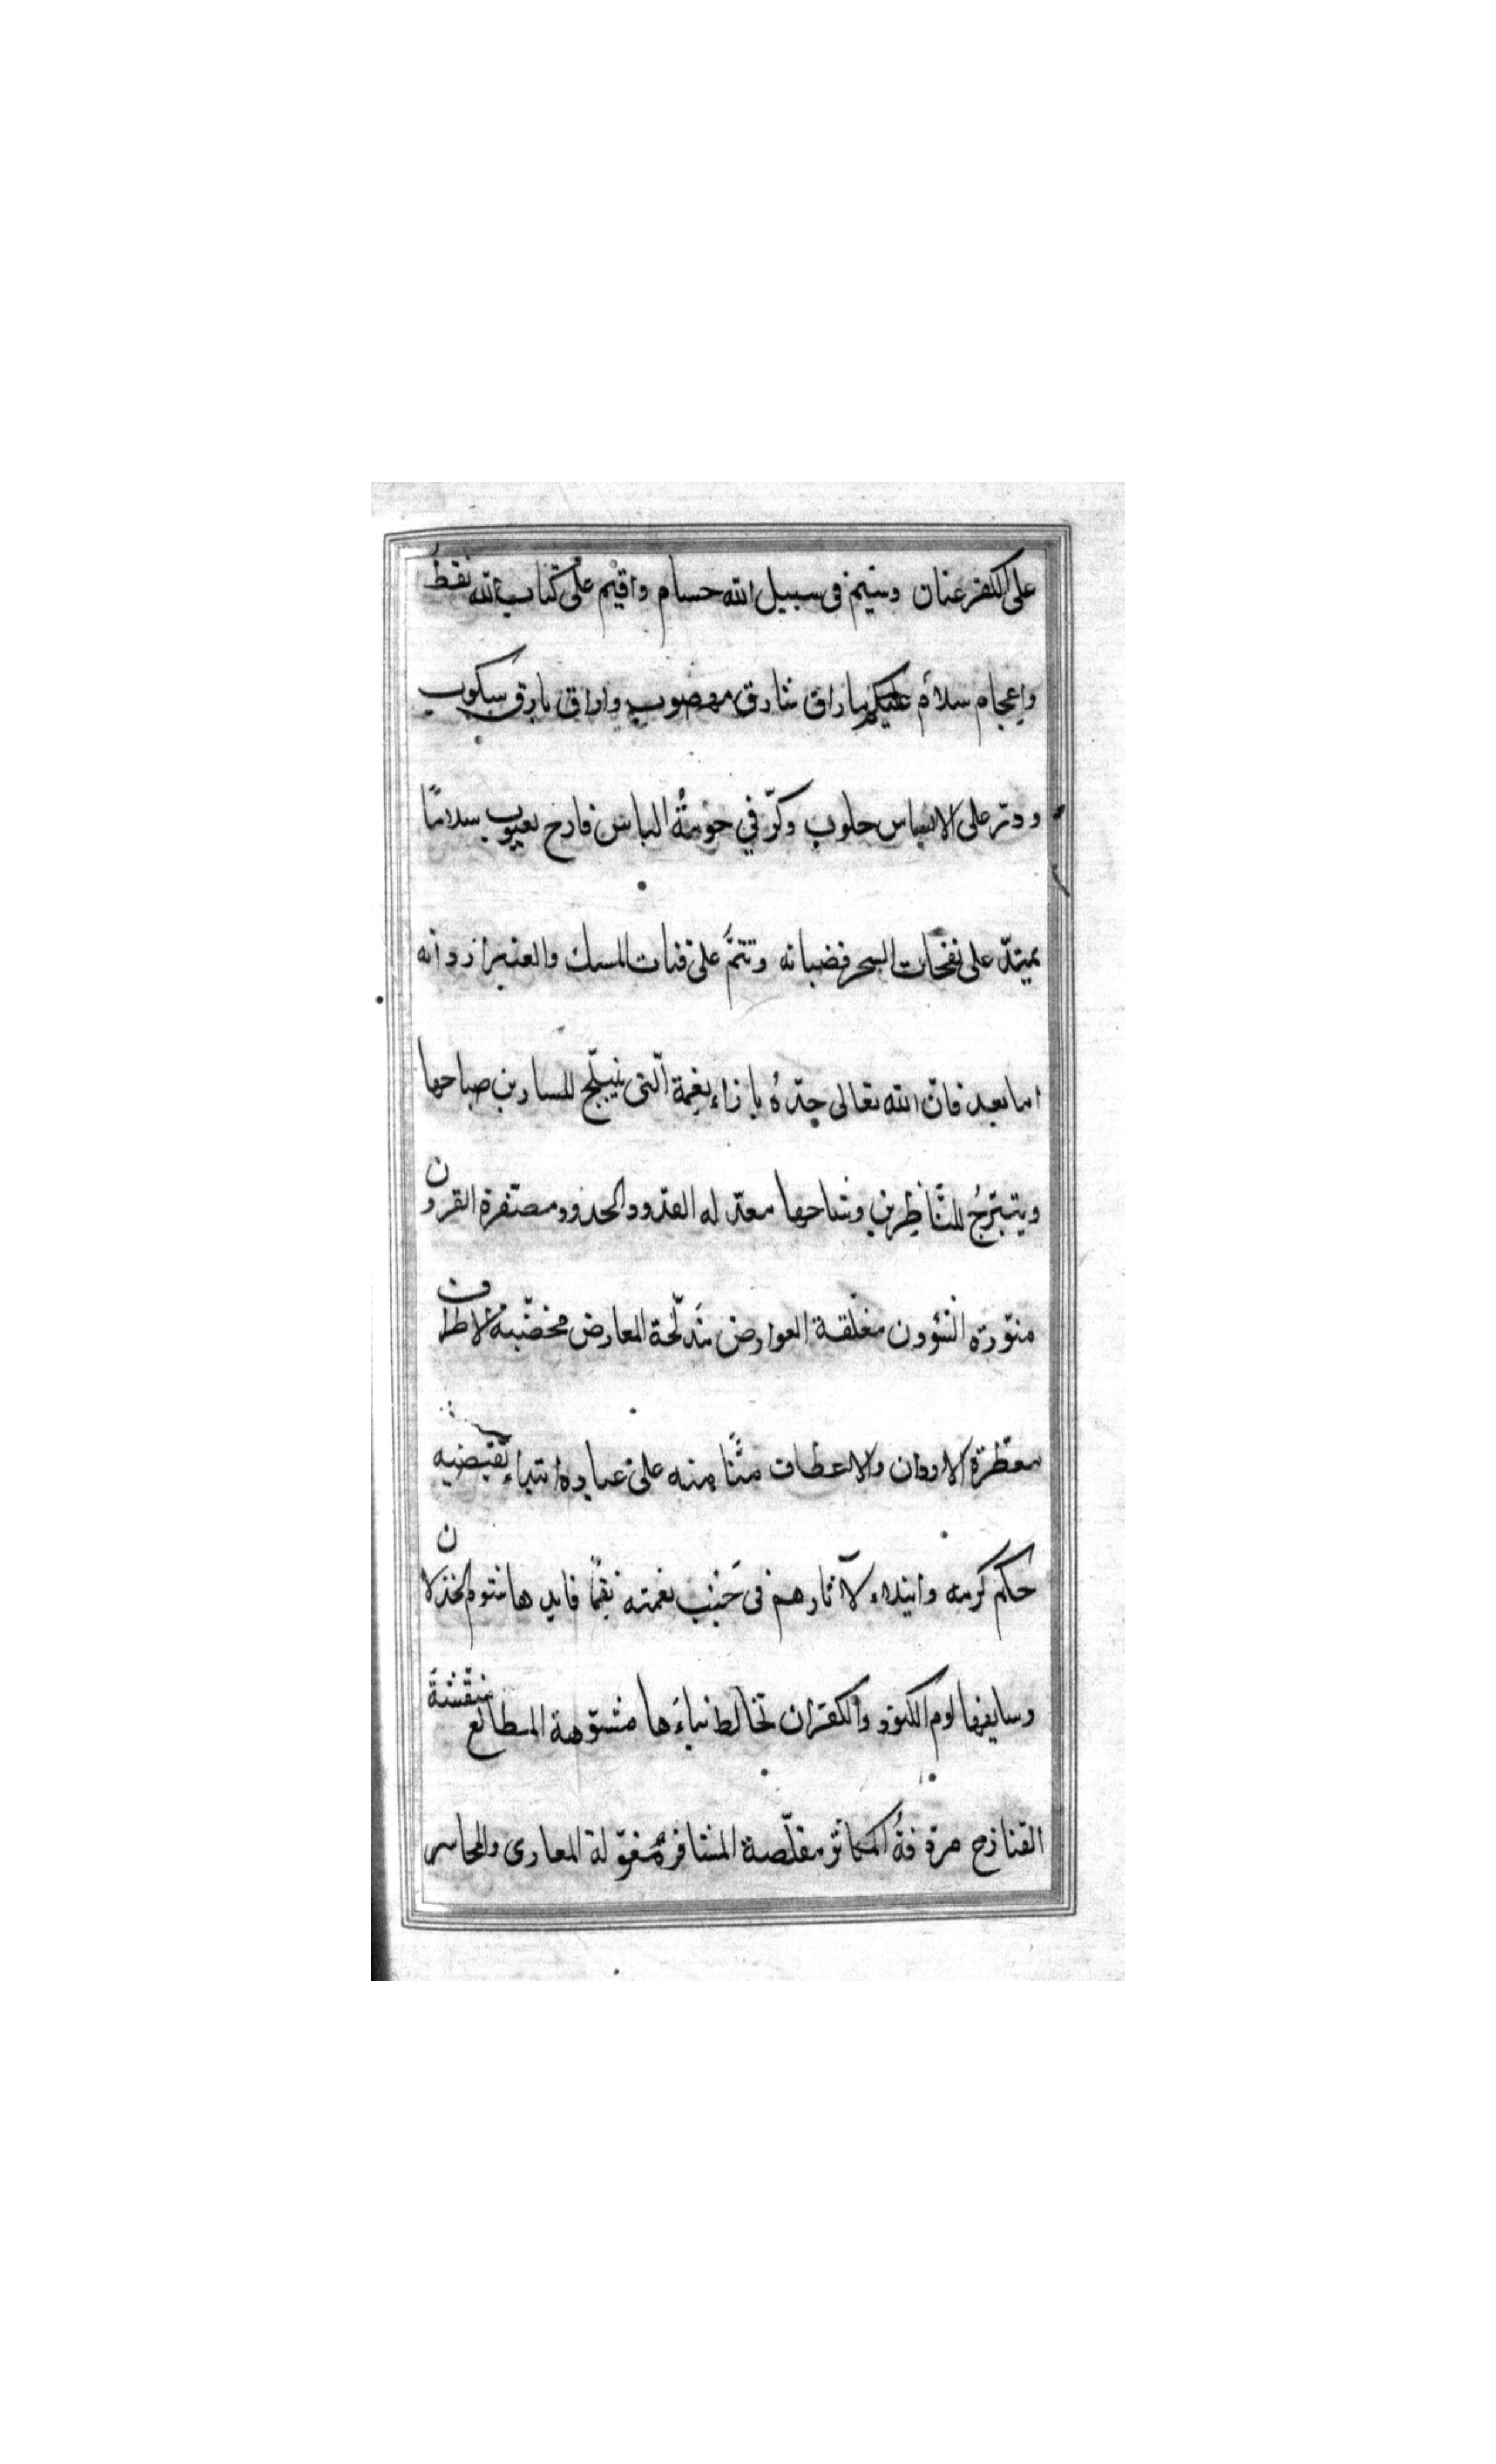 على الكفر عنان وشيم فى سبيل الله حسام واقيم على كتاب الله نقط
واعجام سلام عليكم ما راق شارق مهضوب واراق بارق سكوب
ودرّ على الابساس حلوب وكرّ في حومةُ الباس قارح يعبوب سلامًا
يميتدّ على نفحات السحر قضبانه وتنمُّ على فتات المسك والعنبر اردانه
اما بعد فانّ الله تعالى جدّهُ بازاء نعمة الّتى يتبلّج للسارين صباحها
ويتبرّجُ للنّاظرين وشاحها معتدله القدود والحدود مصفرة القرون
منوّرة الشؤون مغلّقة العوارض مخضّبة الاطراف
معطّرة الاردان والاعطاف منًّا منه على عباده ابتداء يقتضيه
حكم كرمه وابتلاء لآثارهم فى جَنب نعمته نِقمًا قايدها شوم الخذلان
وسايقها لوم الكنود والكفران تخالط نباءَها مشوّهة المطالع
القنازع مقلّصة المشافر المعارى والمحاسر